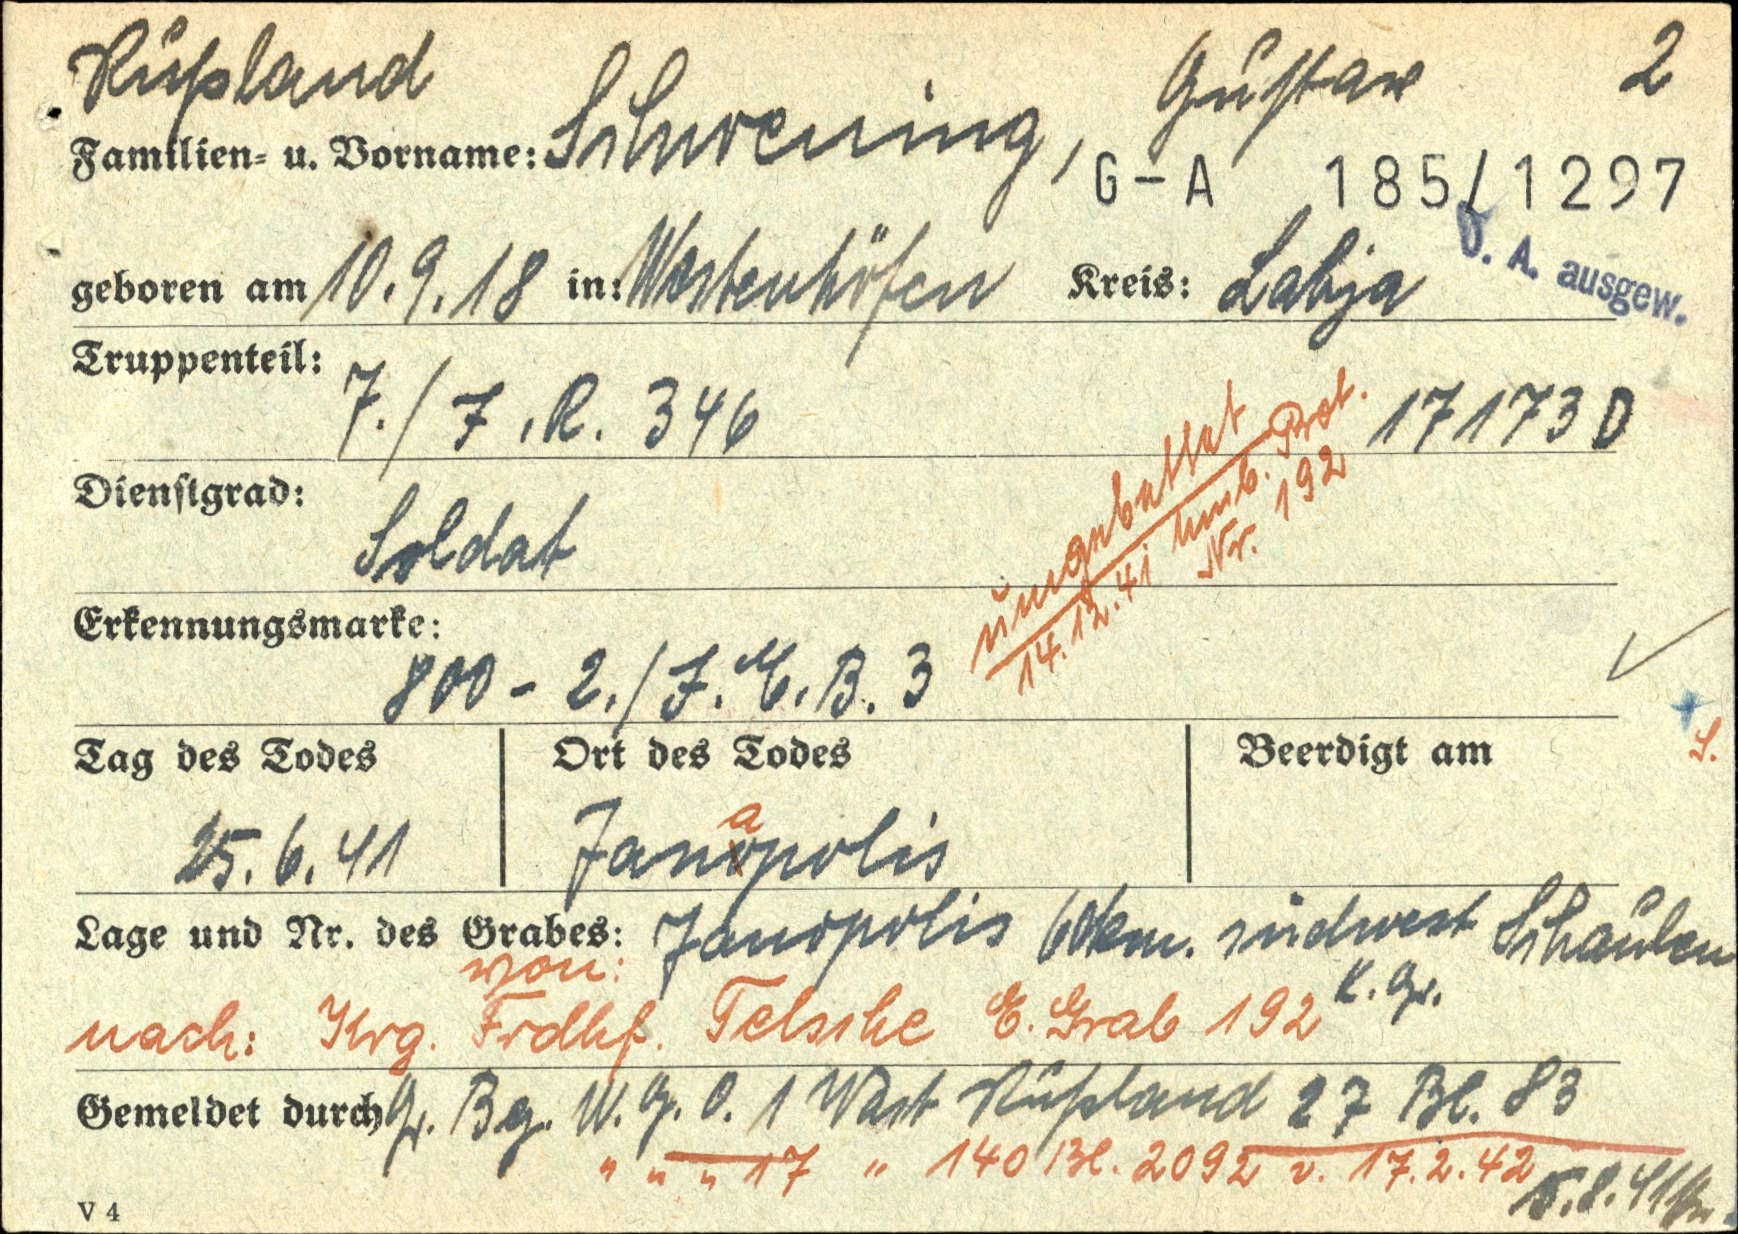 Rußland 2
Familien- u. Vorname: Schwening, Gustav
G-A 185/1297
D. A. ausgew.
geboren am 10.9.18 in: Wartenhöfen Kreis: Labja
Truppenteil:
7./J.R. 346 17173 D
Dienstgrad:
Soldat
umgebettet
14.12.41 Umb. Prot.
Nr. 192
Erkennungsmarke:
800 - 2./J.E.B. 3
S.
Tag des Todes Ort des Todes Beerdigt am
a
25.6.41 Janopolis
Lage und Nr. des Grabes: Janopolis 60 km. südwest Schaulen
von: K. Gr.
nach: Krg. Frdhf. Telsche E. Grab 192
Gemeldet durch Gr. Bg. W.G.O. 1 Wast Rußland 27 Bl. 83
" " " 17 " 140 Bl. 2092 v. 17.2.42
15.8.41
V 4